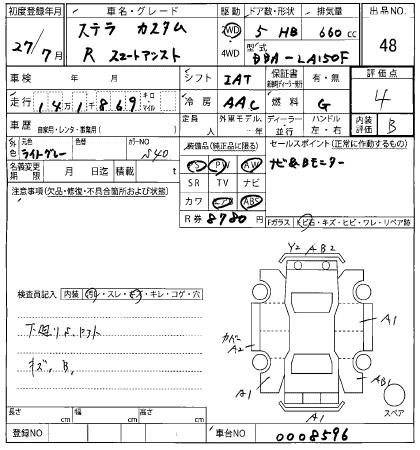 初度登録年月 車名・グレード 駆動 ドア数・形状 排気量 出品NO.
27/7月 ステラ カスタム R スマートアシスト 2WD 4WD 5 HB 660cc 48
型式 DBA-LA150F
車検 年 月 シフト IAT 保証書 有・無 評価点
走行 141千869 キロ・マイル 冷房 AAC 燃料 G 4
車歴 自家用・レンタ・事業用( ) 定員 人 外車モデル ディーラー・並行 ハンドル 左・右 内装評価 B
外色 元色 ライトグレー 色替 カラーNO S40 装備品(純正品に限る) セールスポイント(正常に作動するもの)
PS PW AW ナビ&Bモニター
名義変更期限 月 日迄 積載 t SR TV ナビ
注意事項(欠品・修復・不具合箇所および状態) カワ ABS
R券 8780円 Fガラス キズ・ヒビ・ワレ・リペア跡
Y2 A B2
検査員記入 内装 スレ・キズ・キレ・コゲ・穴
A1
カバー A2
キズ、B、
A1 AB1
スペア
A1
長さ cm 幅 cm 高さ cm
登録NO 車台NO 0008596